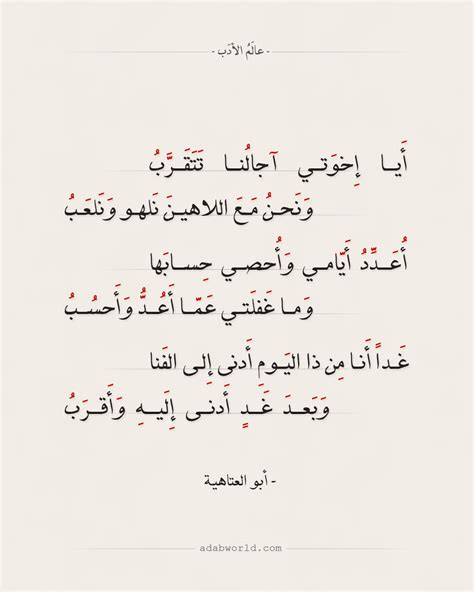 - عالَمُ الأدَب -
أَيا إِخوَتي آجالُنا تَتَقَرَّبُ
وَنَحنُ مَعَ اللاهينَ نَلهو وَنَلعَبُ
أُعَدِّدُ أَيّامي وَأُحصي حِسابَها
وَما غَفلَتي عَمّا أَعُدُّ وَأَحسُبُ
غَداً أَنا مِن ذا اليَومِ أَدنى إِلى الفَنا
وَبَعدَ غَدٍ أَدنى إِلَيهِ وَأَقرَبُ
- أبو العتاهية
adabworld.com